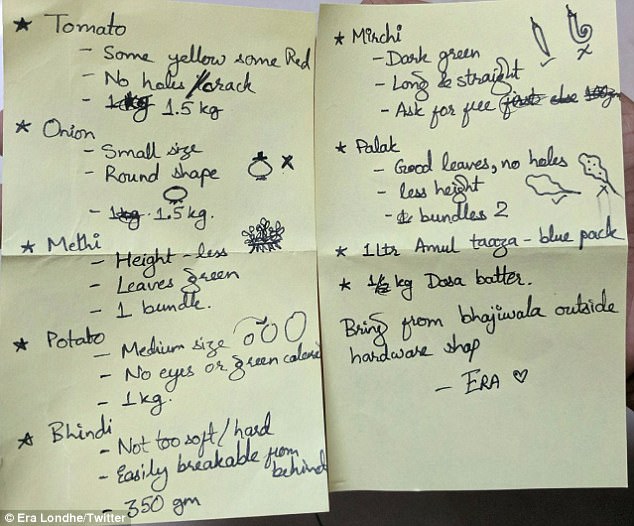 ★ Tomato
- Some yellow some Red
- No holes / crack
- 1kg 1.5 kg
★ Onion
- Small size
- Round shape
- 1kg. 1.5 kg.
★ Methi
- Height - less
- Leaves green
- 1 bundle.
★ Potato
- Medium size
- No eyes or green
- 1 kg.
★ Bhindi
- Not too soft / hard
- Easily breakable from
behind
- 350 gm
★ Mirchi
- Dark green
- Long & straight
- Ask for free
★ Palak
- Good leaves, no holes
- less height
- bundles 2
★ 1 Ltr Amul taaza - blue pack
★ kg Dosa batter.
Bring from bhajiwala outside
hardware shop
- ERA ♡
© Era Londhe/Twitter